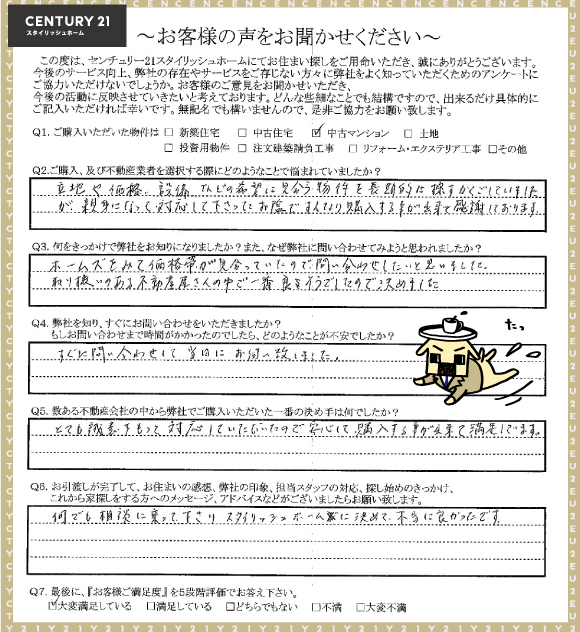 CENTURY 21
スタイリッシュホーム
～お客様の声をお聞かせください～
この度は、センチュリー21スタイリッシュホームにてお住まい探しをご用命いただき、誠にありがとうございます。
今後のサービス向上、弊社の存在やサービスをご存じない方々に弊社をよく知っていただくためのアンケートに
ご協力いただけないでしょうか。お客様のご意見をお聞かせいただき、
今後の活動に反映させていきたいと考えております。どんな些細なことでも結構ですので、出来るだけ具体的に
ご記入いただければ幸いです。無記名でも構いませんので、是非ご協力をお願い致します。
Q1. ご購入いただいた物件は □ 新築住宅 □ 中古住宅 ☑ 中古マンション □ 土地
□ 投資用物件 □ 注文建築請負工事 □ リフォーム・エクステリア工事 □その他
Q2.ご購入、及び不動産業者を選択する際にどのようなことで悩まれていましたか?
立地や価格、設備などの希望に見合う物件を長期的に探すかくごしていました
が、親身になって対応して下さったお陰ですんなり購入する事が出来て感謝しております。
Q3. 何をきっかけで弊社をお知りになりましたか?また、なぜ弊社に問い合わせてみようと思われましたか?
ホームズをみて価格帯が見合っていたので問い合わせしたいと思いました。
取り扱いのある不動産屋さんの中で一番良さそうでしたので決めました
Q4. 弊社を知り、すぐにお問い合わせをいただきましたか?
もしお問い合わせまで時間がかかったのでしたら、どのようなことが不安でしたか?
すぐに問い合わせして当日にお伺い致しました。
たっ
Q5. 数ある不動産会社の中から弊社でご購入いただいた一番の決め手は何でしたか?
とても誠意をもって対応していただいたので安心して購入する事が出来て満足しています。
Q6. お引渡しが完了して、お住まいの感想、弊社の印象、担当スタッフの対応、探し始めのきっかけ、
これから家探しをする方へのメッセージ、アドバイスなどがございましたらお願い致します。
何でも相談に乗って下さり スタイリッシュホーム様に決めて、本当に良かったです。
Q7. 最後に、『お客様ご満足度』を5段階評価でお答え下さい。
☑大変満足している □満足している □どちらでもない □不満 □大変不満